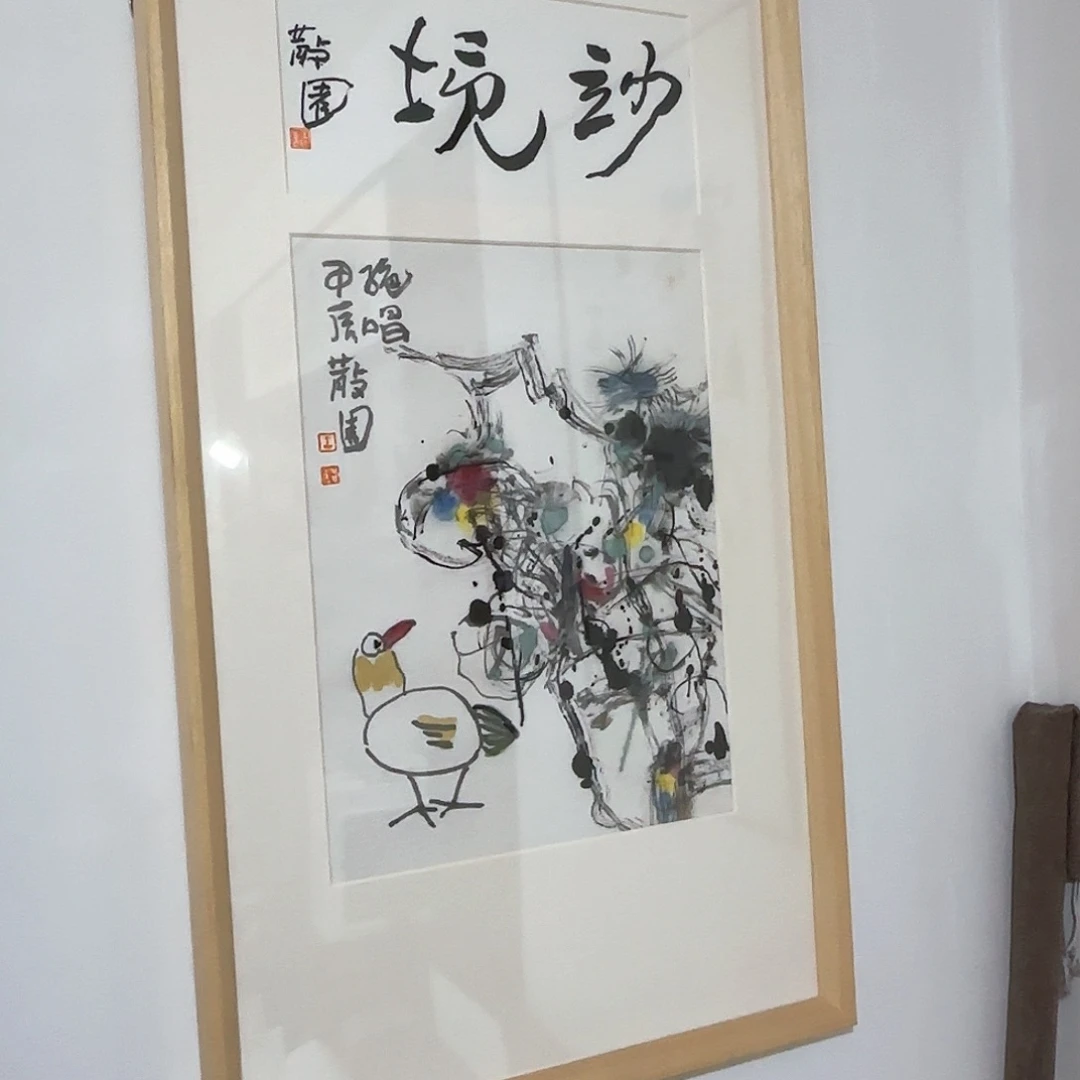 妙境
散園
绝唱
甲辰散園